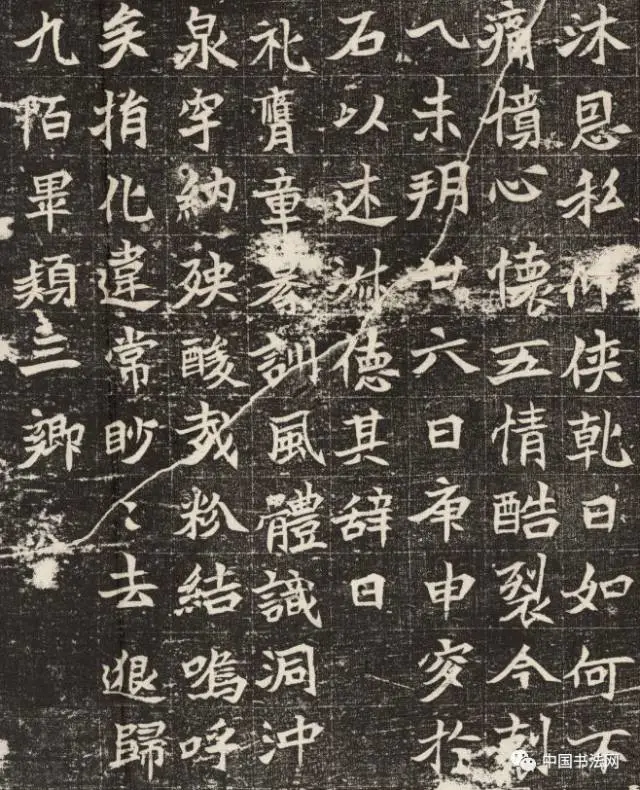 沐恩私仰侠乾日如何
痛憤心懷五情酷裂今刻
未玥廿六日庚申穸於
石以述德其辞曰
礼膺章訓風體識洞沖
泉穻納殃酸結嗚呼
矣捎化違常眇〻去退歸
九陌畢類三卿
中国书法网